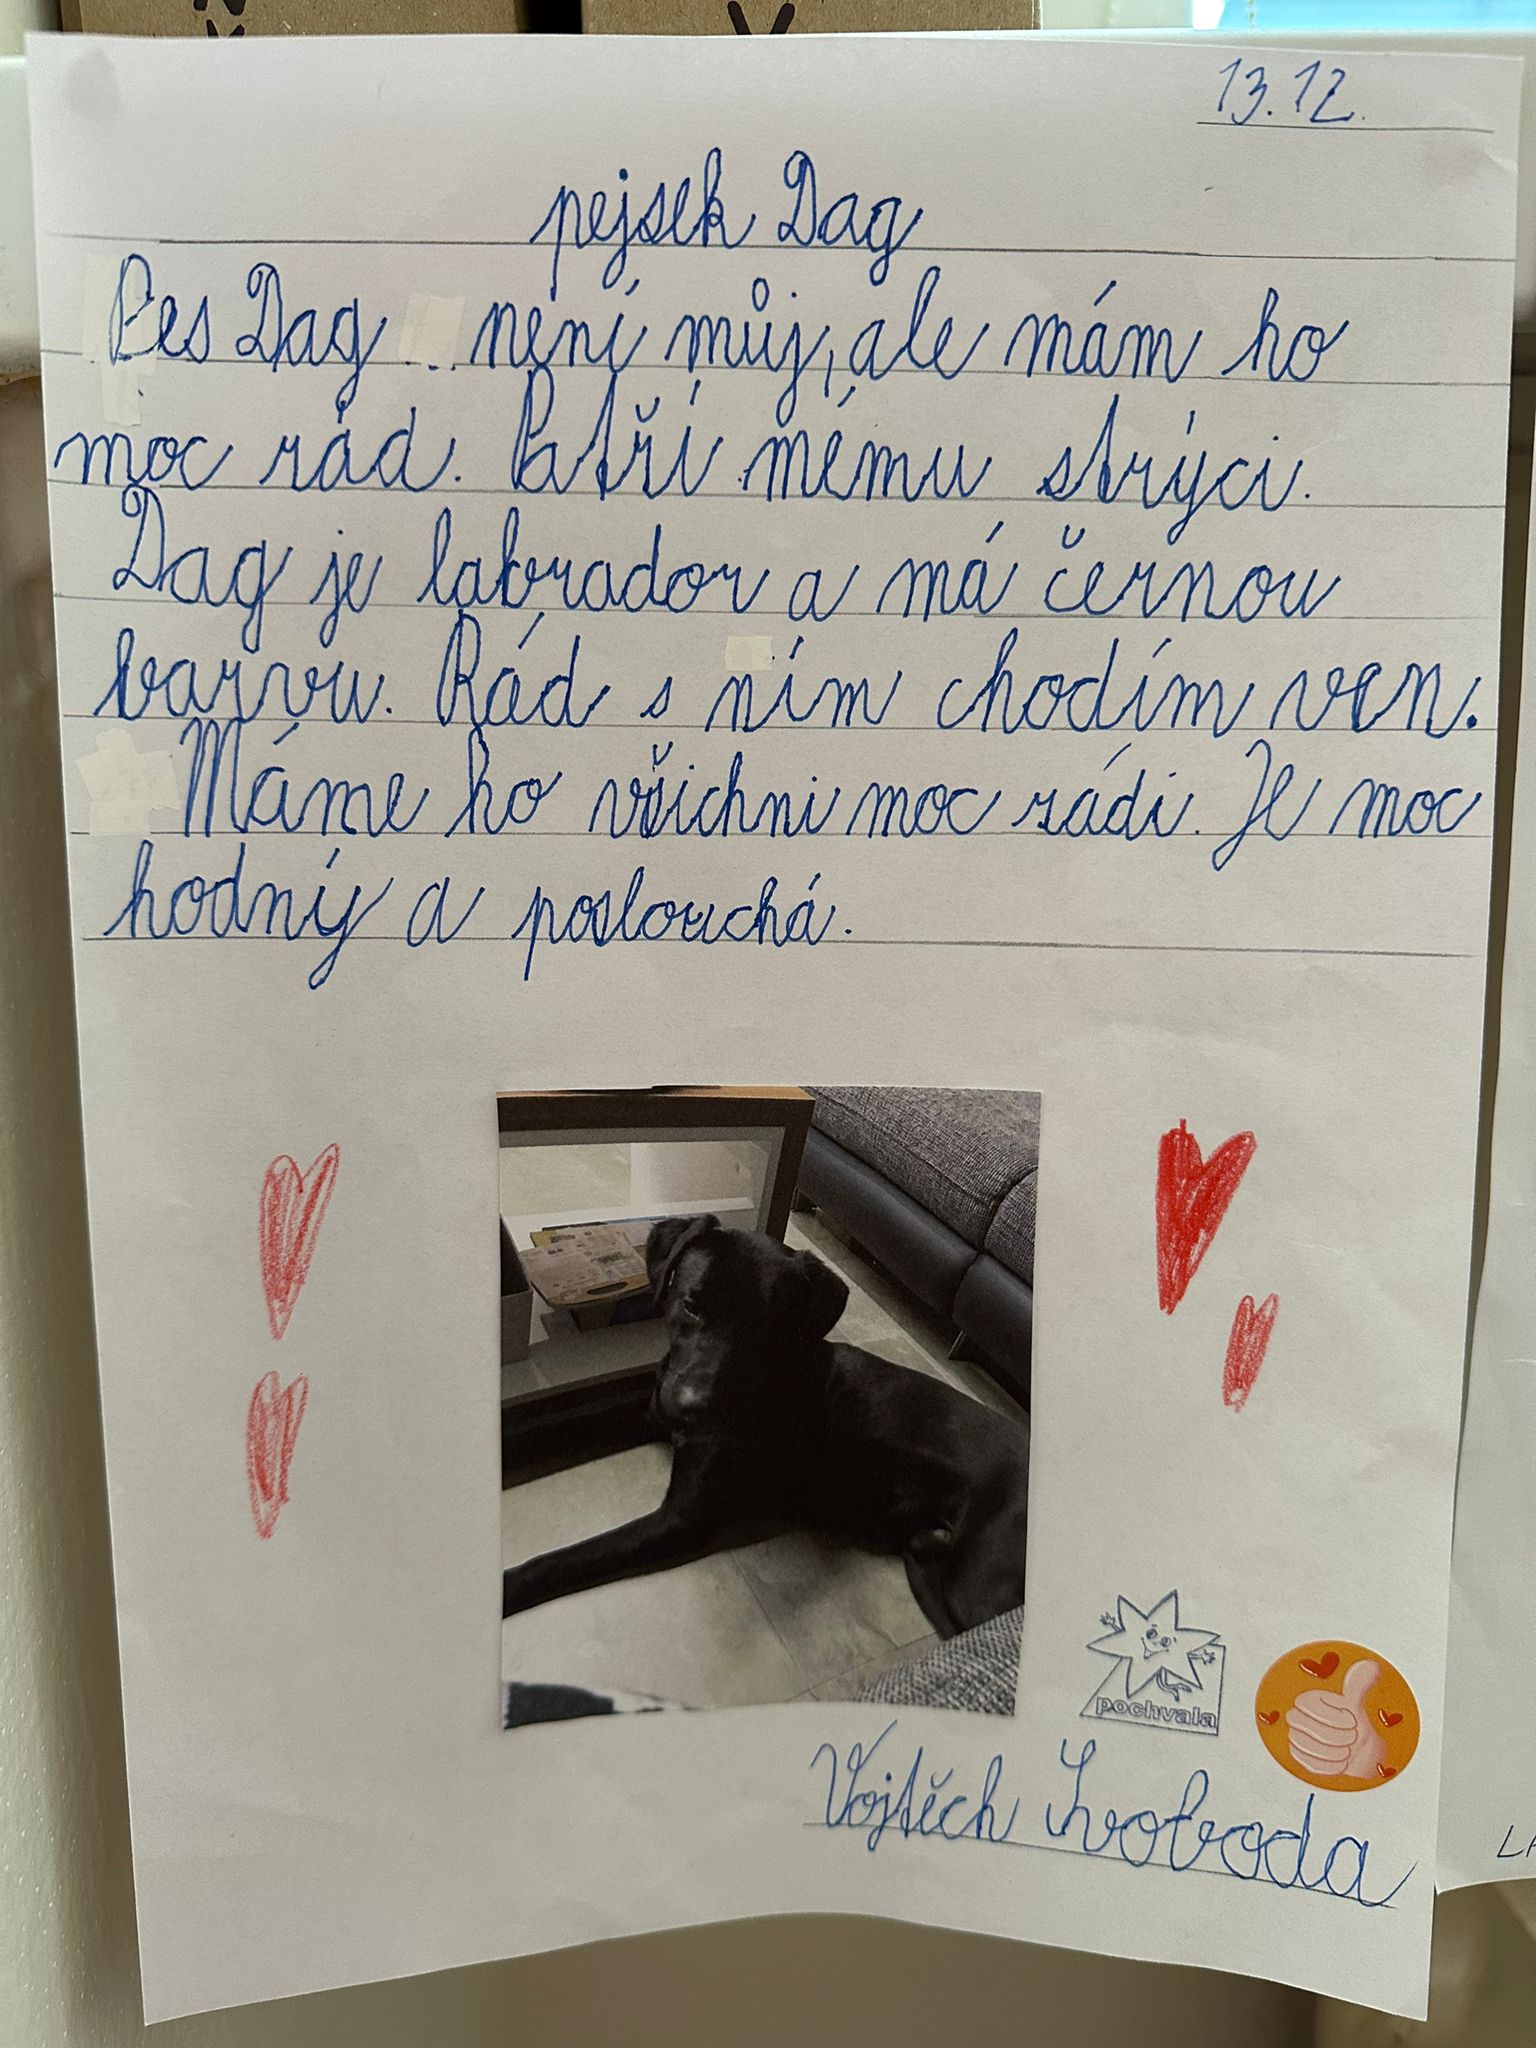 13.12.
pejsek Dag
Pes Dag není můj, ale mám ho
moc rád. Patří mému strýci.
Dag je labrador a má černou
barvu. Rád s ním chodím ven.
Máme ho všichni moc rádi. Je moc
hodný a poslouchá.
pochvala
Vojtěch Svoboda